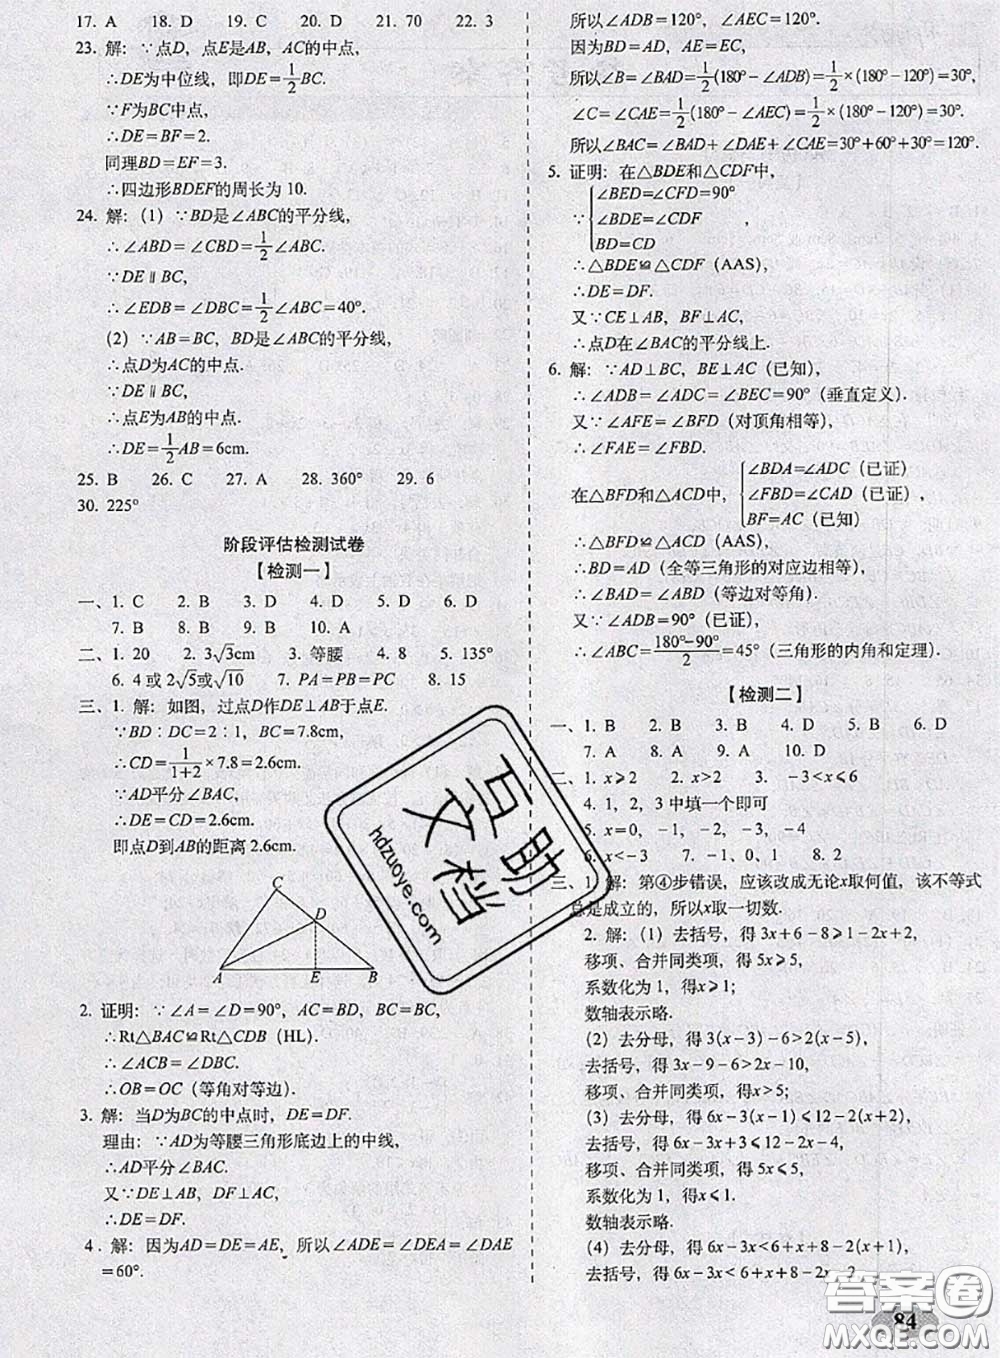 17. A 18. D 19. C 20. D 21. 70 22. 3
23. 解：∵点D，点E是AB，AC的中点，
∴DE为中位线，即DE=1/2BC.
∵F为BC中点，
∴DE=BF=2.
同理BD=EF=3.
∴四边形BDEF的周长为10.
24. 解：（1）∵BD是∠ABC的平分线，
∴∠ABD=∠CBD=1/2∠ABC.
∵DE∥BC，
∴∠EDB=∠DBC=1/2∠ABC=40°.
（2）∵AB=BC，BD是∠ABC的平分线，
∴点D为AC的中点.
∵DE∥BC，
∴点E为AB的中点.
∴DE=1/2AB=6cm.
25. B 26. C 27. A 28. 360° 29. 6
30. 225°
阶段评估检测试卷
【检测一】
一、1. C 2. B 3. D 4. D 5. D 6. D
7. B 8. B 9. B 10. A
二、1. 20 2. 3√3cm 3. 等腰 4. 8 5. 135°
6. 4或2√5或√10 7. PA=PB=PC 8. 15
三、1. 解：如图，过点D作DE⊥AB于点E.
∵BD∶DC=2∶1，BC=7.8cm，
∴CD=1/(1+2)×7.8=2.6cm.
∵AD平分∠BAC，
∴DE=CD=2.6cm.
即点D到AB的距离2.6cm.
C
D
A E B
2. 证明：∵∠A=∠D=90°，AC=BD，BC=BC，
∴Rt△BAC≌Rt△CDB（HL）.
∴∠ACB=∠DBC.
∴OB=OC（等角对等边）.
3. 解：当D为BC的中点时，DE=DF.
理由：∵AD为等腰三角形底边上的中线，
∴AD平分∠BAC.
又∵DE⊥AB，DF⊥AC，
∴DE=DF.
4. 解：因为AD=DE=AE，所以∠ADE=∠DEA=∠DAE
=60°.
所以∠ADB=120°，∠AEC=120°.
因为BD=AD，AE=EC，
所以∠B=∠BAD=1/2(180°-∠ADB)=1/2×(180°-120°)=30°，
∠C=∠CAE=1/2(180°-∠AEC)=1/2×(180°-120°)=30°.
所以∠BAC=∠BAD+∠DAE+∠CAE=30°+60°+30°=120°.
5. 证明：在△BDE和△CDF中，
∵{∠BED=∠CFD=90°
∠BDE=∠CDF
BD=CD
∴△BDE≌△CDF（AAS），
∴DE=DF.
又∵CE⊥AB，BF⊥AC，
∴点D在∠BAC的平分线上.
6. 解：∵AD⊥BC，BE⊥AC（已知），
∴∠ADB=∠ADC=∠BEC=90°（垂直定义）.
又∵∠AFE=∠BFD（对顶角相等），
∴∠FAE=∠FBD.
在△BFD和△ACD中，{∠BDA=∠ADC（已证）
∠FBD=∠CAD（已证）
BF=AC（已知）
∴△BFD≌△ACD（AAS），
∴BD=AD（全等三角形的对应边相等），
∴∠BAD=∠ABD（等边对等角）.
又∵∠ADB=90°（已证），
∴∠ABC=(180°-90°)/2=45°（三角形的内角和定理）.
【检测二】
一、1. B 2. B 3. B 4. D 5. B 6. D
7. A 8. A 9. A 10. D
二、1. x≥2 2. x>2 3. -3<x≤6
4. 1，2，3中填一个即可
5. x=0，-1，-2，-3，-4
6. x<-3 7. -1，0，1 8. 2
三、1. 解：第④步错误，应该改成无论x取何值，该不等式
总是成立的，所以x取一切数.
2. 解：（1）去括号，得3x+6-8≥1-2x+2，
移项、合并同类项，得5x≥5，
系数化为1，得x≥1；
数轴表示略.
（2）去分母，得3(x-3)-6>2(x-5)，
去括号，得3x-9-6>2x-10，
移项、合并同类项，得x>5；
（3）去分母，得6x-3(x-1)≤12-2(x+2)，
去括号，得6x-3x+3≤12-2x-4，
移项、合并同类项，得5x≤5，
系数化为1，得x≤1.
数轴表示略.
（4）去分母，得6x-3x<6+x+8-2(x+1)，
去括号，得6x-3x<6+x+8-2x-2
84
互助文档
hdzuoye.com
答案圈
MXQE.COM